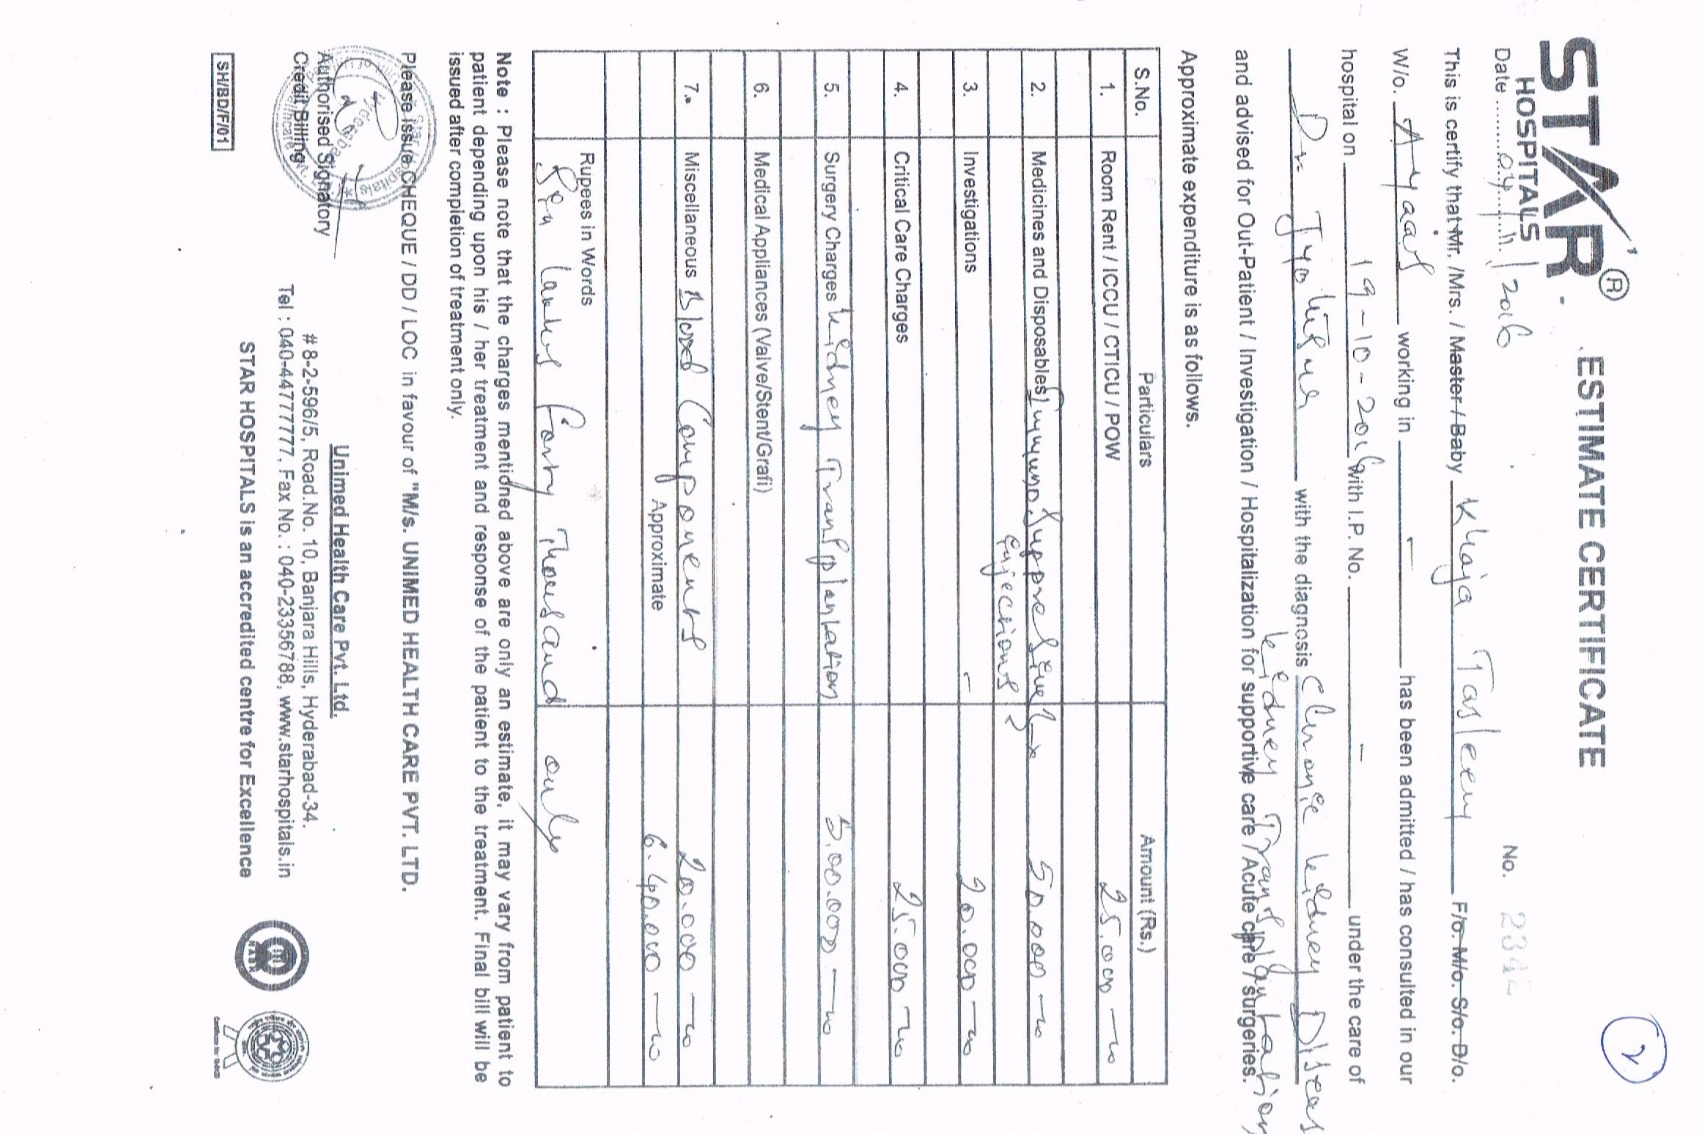 STAR®
HOSPITALS
ESTIMATE CERTIFICATE
2
No. 2342
Date 04/11/2016
This is certify that Mr. /Mrs. / Master / Baby Khaja Tasleem F/o. M/o. S/o. D/o.
W/o. Ayaas working in - has been admitted / has consulted in our
hospital on 19-10-2016 with I.P. No. - under the care of
Dr with the diagnosis Chronic Kidney Diseas
Kidney Transplantation
and advised for Out-Patient / Investigation / Hospitalization for supportive care / Acute care / surgeries.
Approximate expenditure is as follows.
S.No. Particulars Amount (Rs.)
1. Room Rent / ICCU / CTICU / POW 25.000
2. Medicines and Disposables 50.000
Injections
3. Investigations - 20.000
4. Critical Care Charges 25.000
5. Surgery Charges Kidney Transplantation 5.00.000
6. Medical Appliances (Valve/Stent/Grafi)
7. Miscellaneous Blood Components 20.000
Approximate 6.40.000
Rupees in Words
Six Lakhs Forty Thousand only
Note : Please note that the charges mentioned above are only an estimate, it may vary from patient to
patient depending upon his / her treatment and response of the patient to the treatment. Final bill will be
issued after completion of treatment only.
Please issue CHEQUE / DD / LOC in favour of "M/s. UNIMED HEALTH CARE PVT. LTD.
Authorised Signatory
Credit Billing
Unimed Health Care Pvt. Ltd.
# 8-2-596/5, Road.No. 10, Banjara Hills, Hyderabad-34.
Tel : 040-44777777, Fax No. : 040-23356788, www.starhospitals.in
SH/BD/F/01
STAR HOSPITALS is an accredited centre for Excellence
NABH